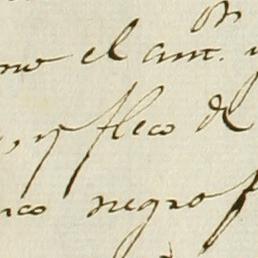 mo el ant.
, y fleco de
nco negro